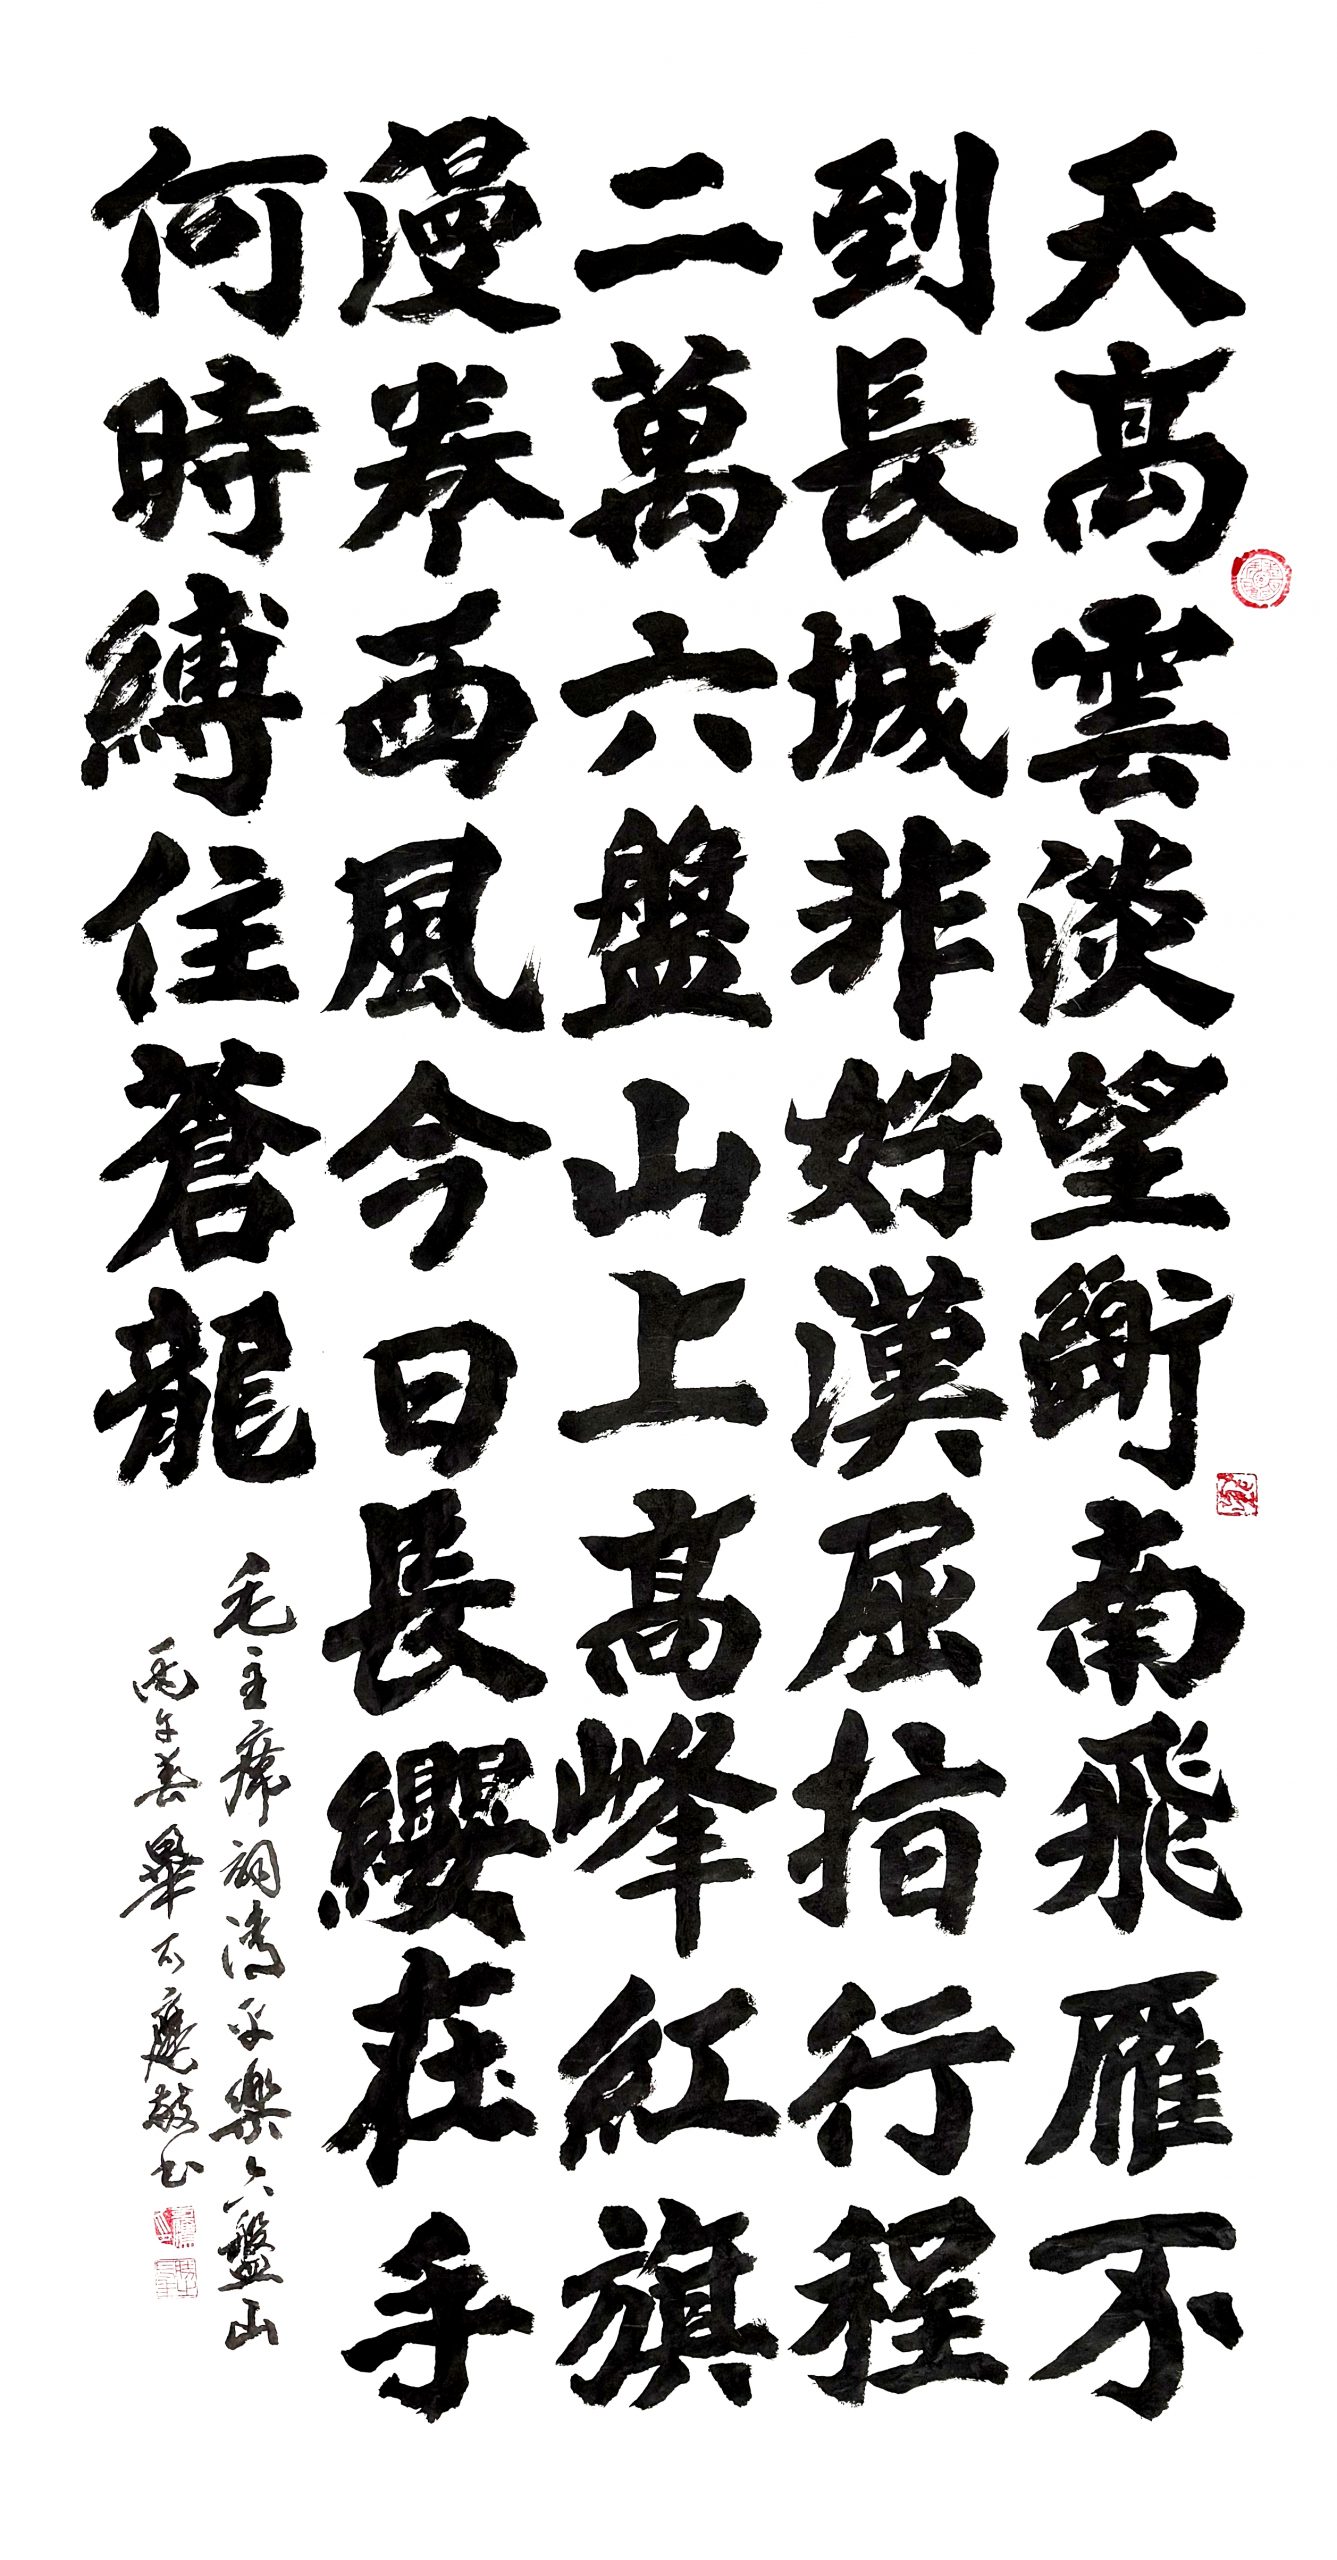 天高雲淡望斷南飛雁不
到長城非好漢屈指行程
二萬六盤山上高峰紅旗
漫卷西風今日長纓在手
何時縛住蒼龍
毛主席詞清平樂六盤山
丙午春畢石敬书